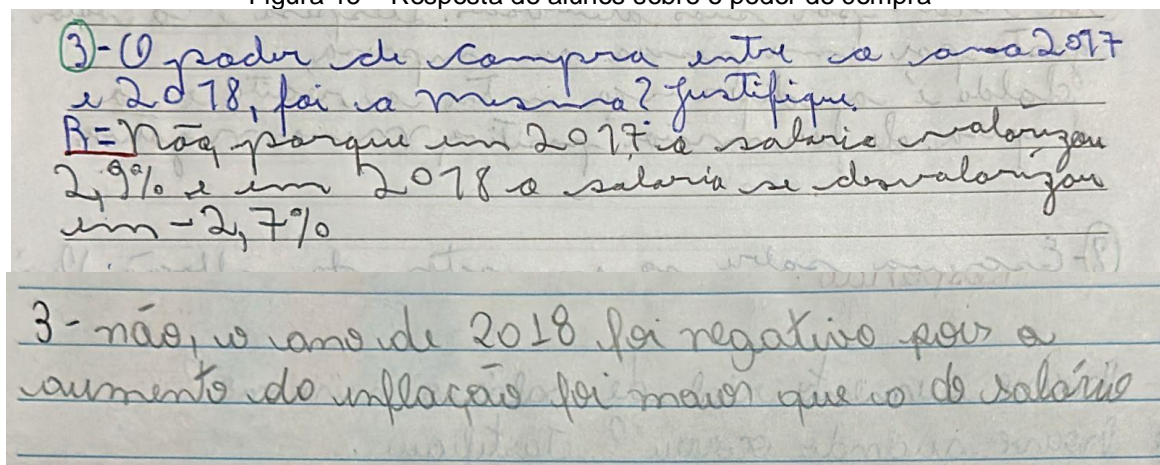 Figura 18 – Resposta de alunos sobre o poder de compra
3-O poder de compra entre o ano 2017
e 2018, foi o mesmo? Justifique.
R=Não, porque em 2017 o salario valorizou
2,9% e em 2018 o salario se desvalorizou
em -2,7%
3-não, o ano de 2018 foi negativo pois o
aumento do inflação foi maior que o do salário